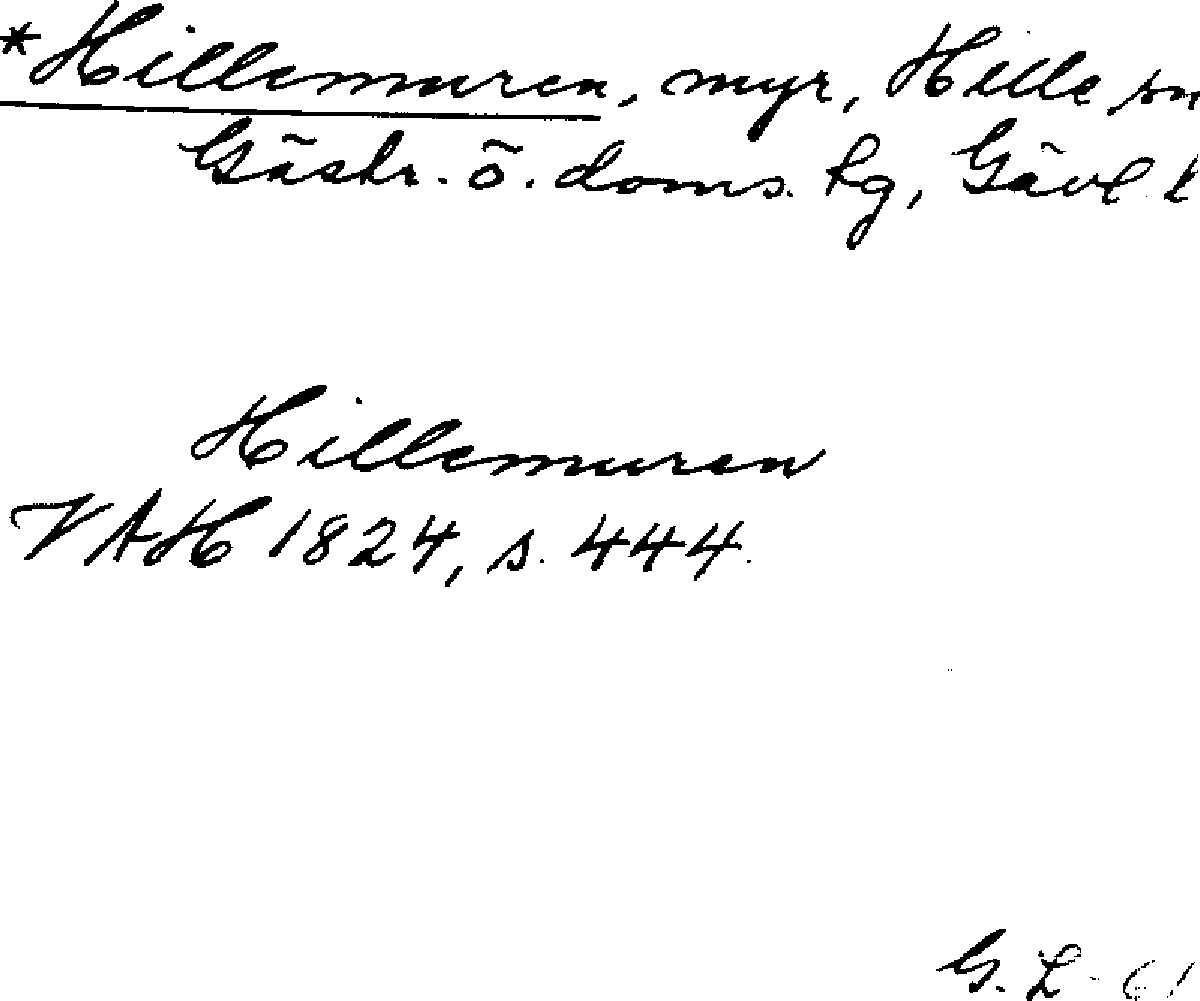 *Hillemuren, myr, Hille sn
Gästr. ö. doms. tg, Gävl. l
Hillemuren
VAH 1824, s. 444.
G. L.